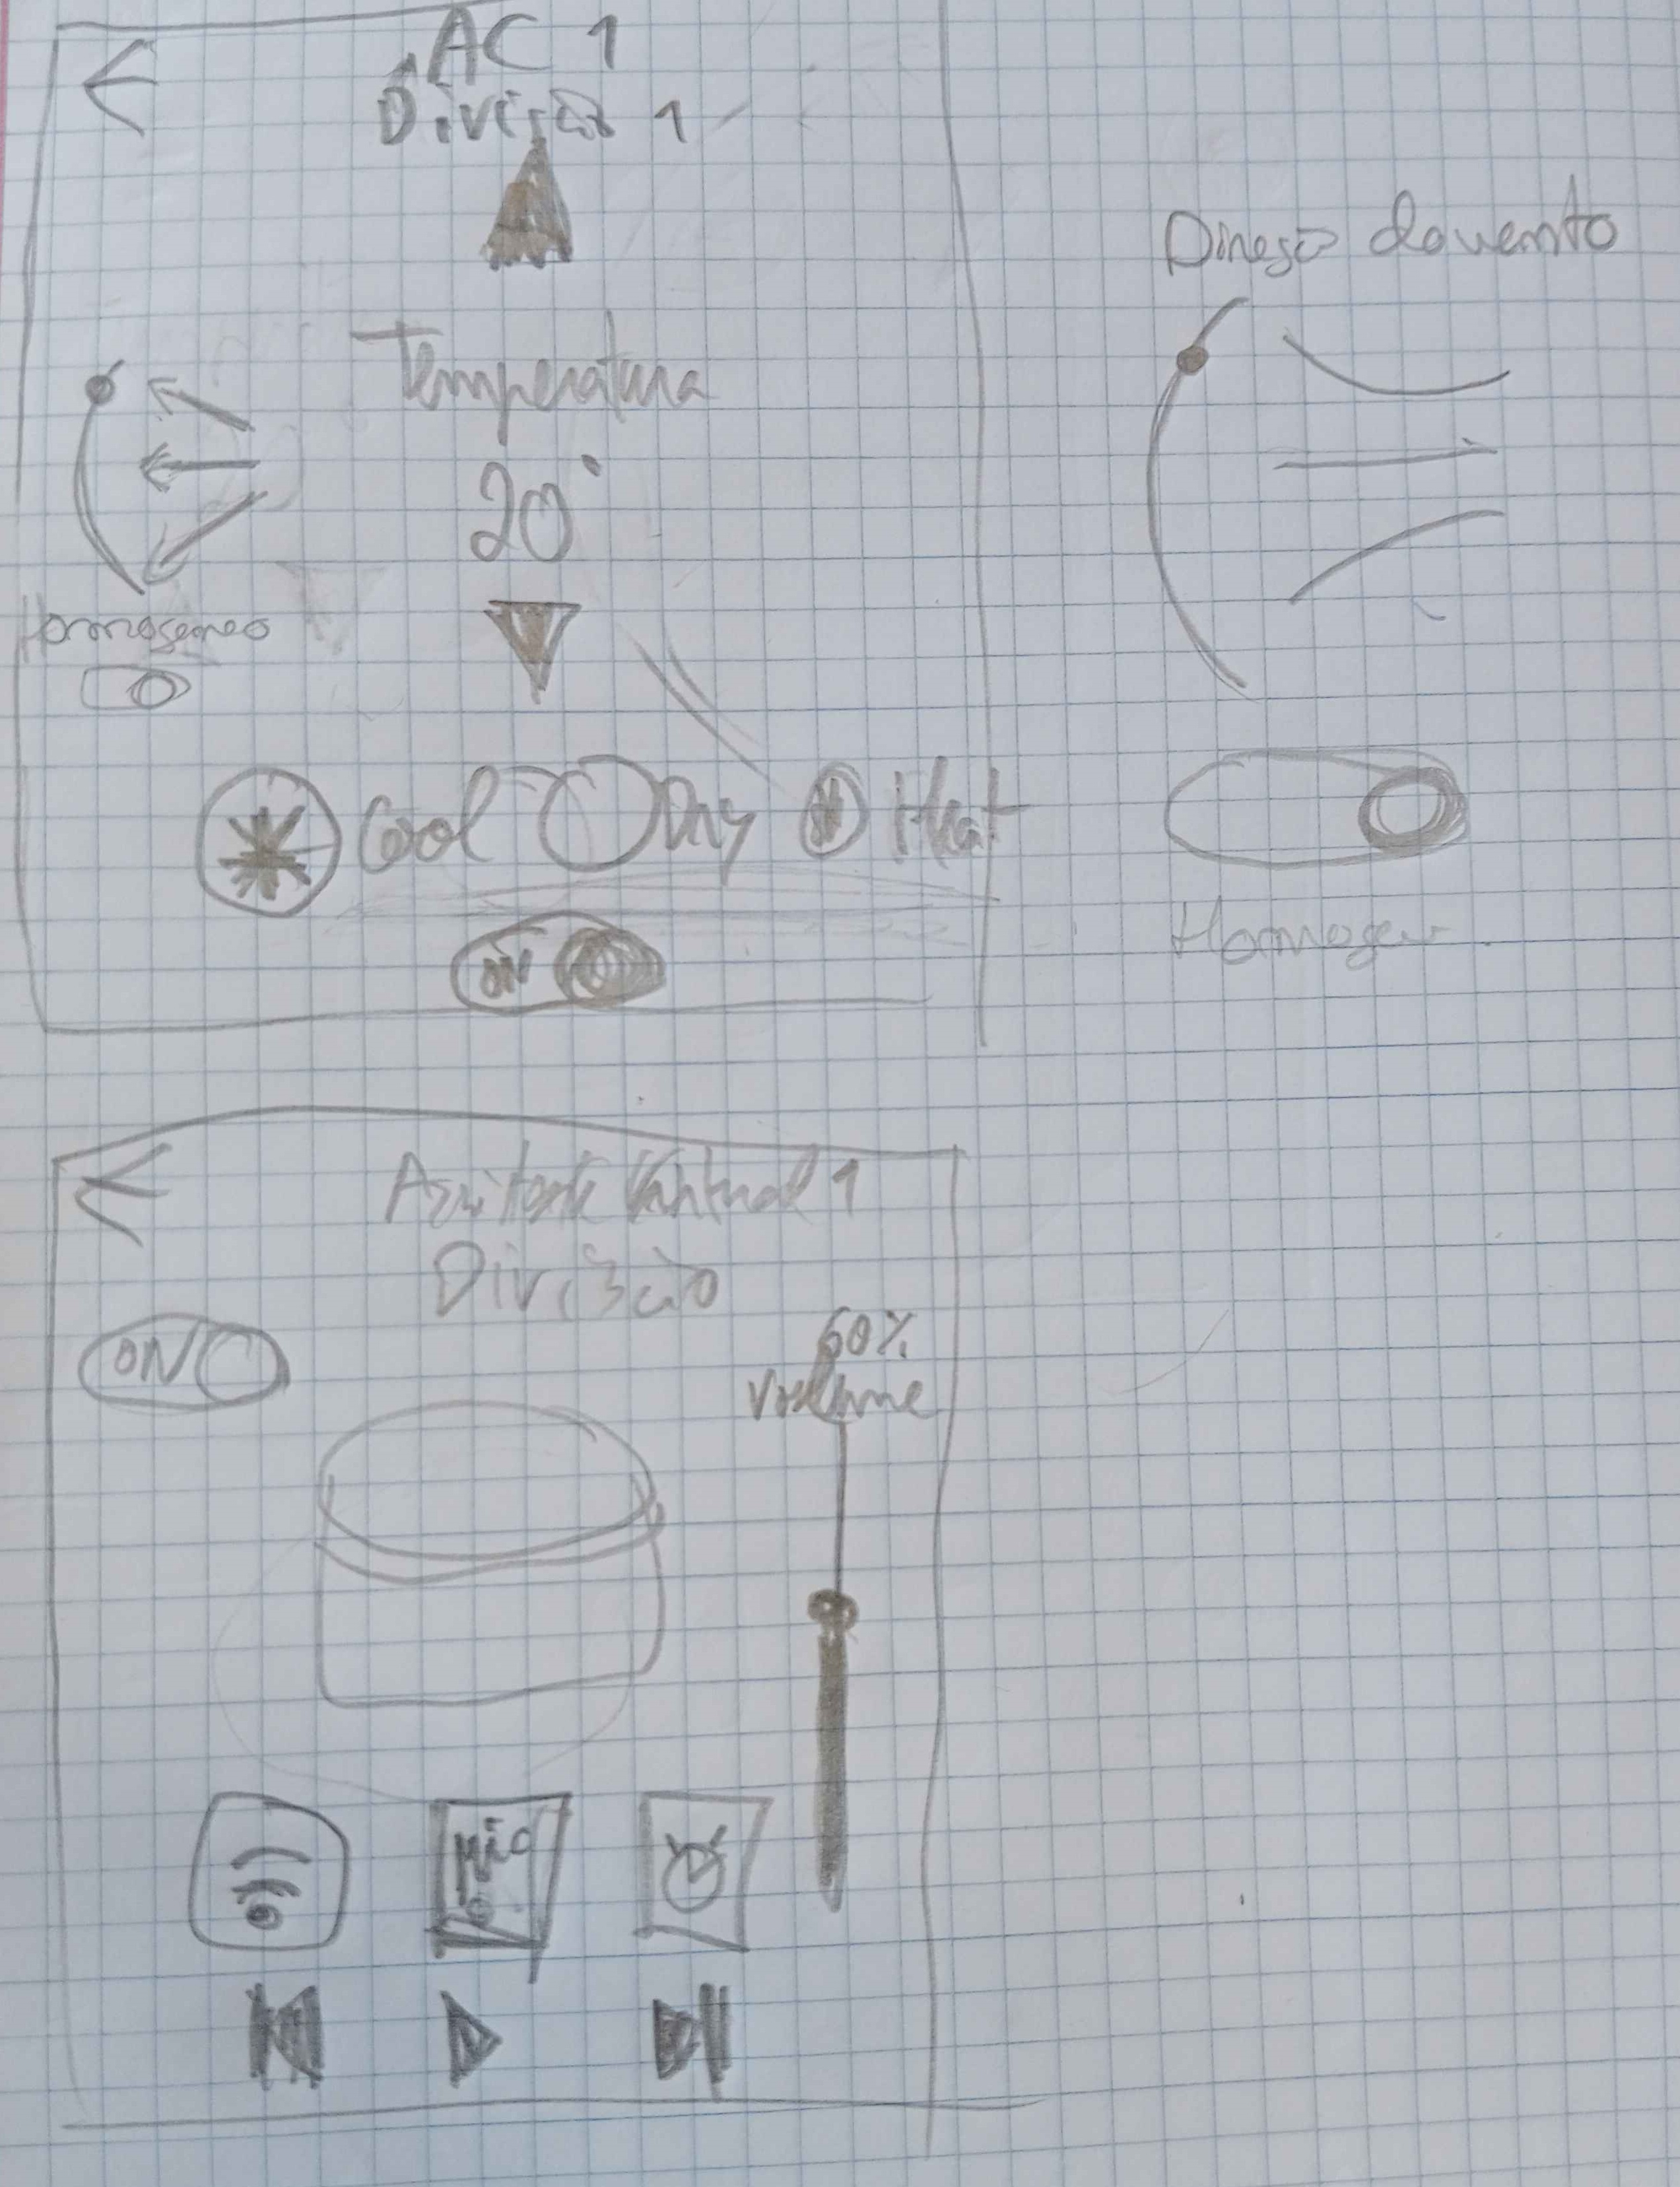 AC 1
Divisão 1
Temperatura
20°
Homogeneo
Cool Dry Heat
ON
Direção do vento
Homogen
1
Divisão
ON
60%
Volume